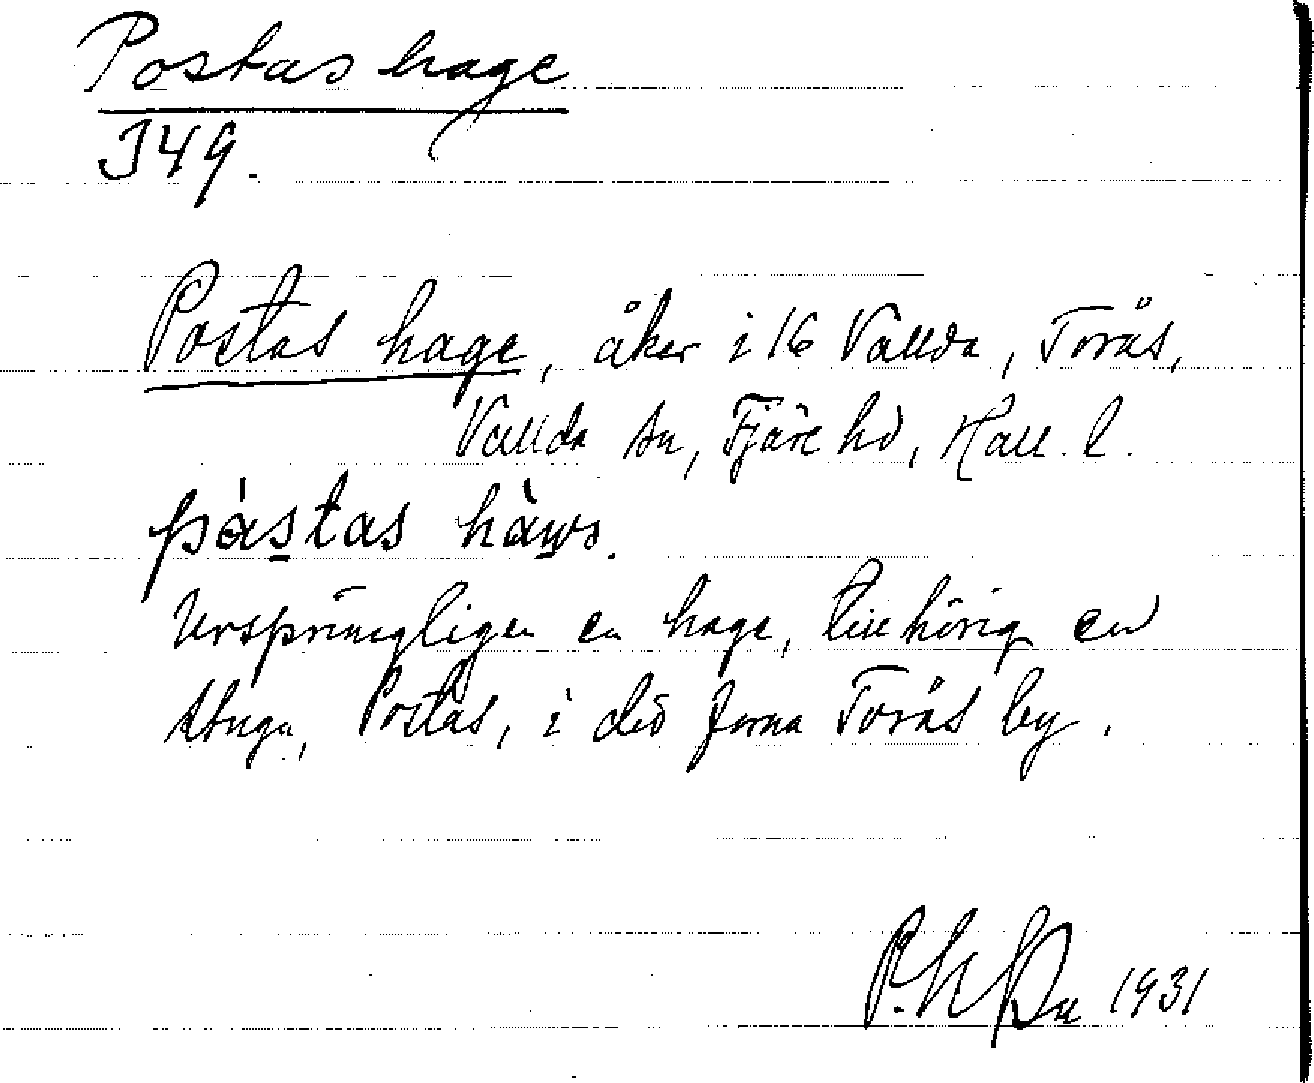 Postas hage
I49.
Postas hage, åker i 16 Vallda, Torås,
Vallda sn, Fjäre hd, Hall. l.
pàstas
Ursprungligen en hage, tillhörig en
stuga, Postas, i det forna Torås by.
1931